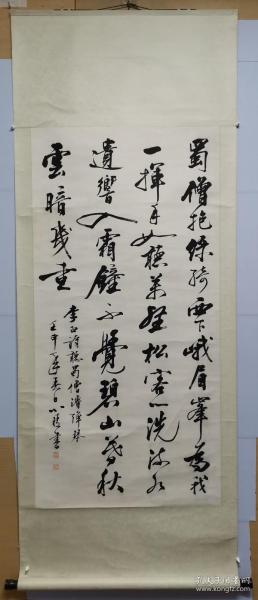 蜀僧抱綠綺西下峨眉峯為我
一揮手如聽萬壑松客心洗流水
遺響入霜鐘不覺碧山暮秋
雲暗幾重
李白詩聽蜀僧濬彈琴
壬申年春日小書